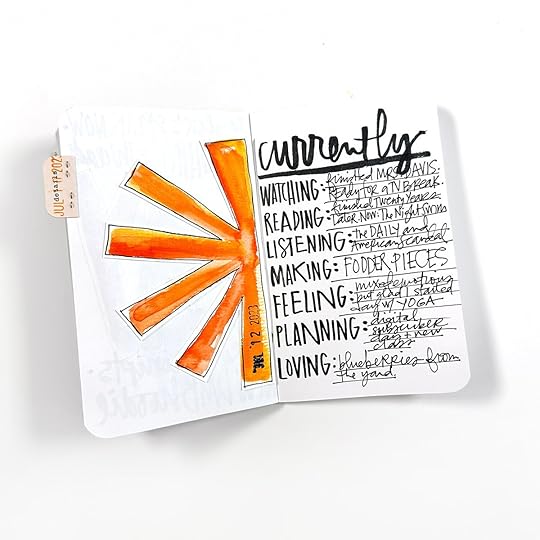 currently
WATCHING: finished MRS. DAVIS.
Ready for a TV BREAK.
READING: finished Twenty Years
Later. Now: The Night Swim
LISTENING: the DAILY and
American Scandal
MAKING: FODDER PIECES
FEELING: mix of emotions
but glad I started
day w/ YOGA
PLANNING: digital
subscriber
day + new
class
LOVING: blueberries from
the yard.
JUN. 12 2023